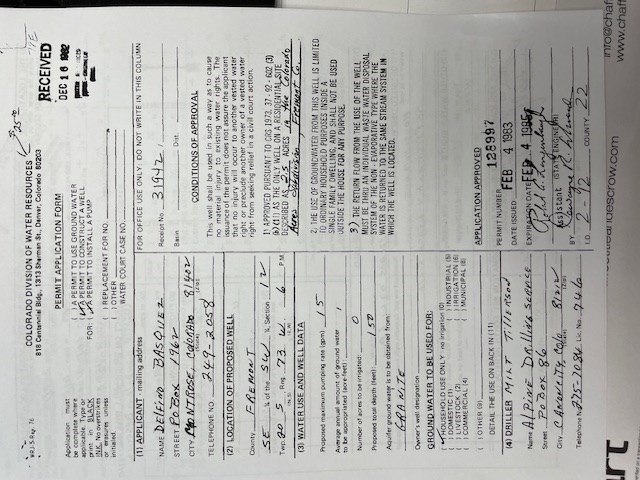 RECEIVED
DEC 16 1982
COLORADO DIVISION OF WATER RESOURCES
818 Centennial Bldg., 1313 Sherman St., Denver, Colorado 80203
PERMIT APPLICATION FORM
Application must
be complete where
applicable. Type or
print in BLACK
INK. No overstrikes
or erasures unless
initialed.
( ) A PERMIT TO USE GROUND WATER
(✓) A PERMIT TO CONSTRUCT A WELL
FOR: (✓) A PERMIT TO INSTALL A PUMP
( ) REPLACEMENT FOR NO.
( ) OTHER
WATER COURT CASE NO.
(1) APPLICANT - mailing address
NAME DELFINO BASQUEZ
STREET PO BOX 1962
CITY MONTROSE, COLORADO 81402
TELEPHONE NO. 249-2058
(2) LOCATION OF PROPOSED WELL
County FREMONT
SE ¼ of the SW ¼, Section 12
Twp. 20 S, Rng. 73 W, 6 P.M.
(3) WATER USE AND WELL DATA
Proposed maximum pumping rate (gpm) 15
Average annual amount of ground water
to be appropriated (acre-feet): 1
Number of acres to be irrigated: 0
Proposed total depth (feet): 150
Aquifer ground water is to be obtained from:
GRANITE
Owner's well designation
GROUND WATER TO BE USED FOR:
(✓) HOUSEHOLD USE ONLY - no irrigation (0)
( ) DOMESTIC (1)
( ) LIVESTOCK (2)
( ) COMMERCIAL (4)
( ) INDUSTRIAL (5)
( ) IRRIGATION (6)
( ) MUNICIPAL (8)
( ) OTHER (9)
DETAIL THE USE ON BACK IN (11)
(4) DRILLER MILT TILLERSON
Name ALPINE DRILLING SERVICE
Street PO BOX 86
City CANON CITY, COLO 81212
Telephone No. 275-7056 Lic. No. 746
FOR OFFICE USE ONLY: DO NOT WRITE IN THIS COLUMN
Receipt No. 31942
Basin Dist.
CONDITIONS OF APPROVAL
This well shall be used in such a way as to cause
no material injury to existing water rights. The
issuance of the permit does not assure the applicant
that no injury will occur to another vested water
right or preclude another owner of a vested water
right from seeking relief in a civil court action.
1) APPROVED PURSUANT TO CRS 1973, 37-92-602 (3)
(b)(II) AS THE ONLY WELL ON A RESIDENTIAL SITE
DESCRIBED AS 2.5 ACRES in the Colorado
Acres Subdivision, Fremont Co.
2) THE USE OF GROUNDWATER FROM THIS WELL IS LIMITED
TO ORDINARY HOUSEHOLD PURPOSES INSIDE A
SINGLE FAMILY DWELLING AND SHALL NOT BE USED
OUTSIDE THE HOUSE FOR ANY PURPOSE.
3) THE RETURN FLOW FROM THE USE OF THE WELL
MUST BE THRU AN INDIVIDUAL WASTE WATER DISPOSAL
SYSTEM OF THE NON-EVAPORATIVE TYPE WHERE THE
WATER IS RETURNED TO THE SAME STREAM SYSTEM IN
WHICH THE WELL IS LOCATED.
APPLICATION APPROVED
PERMIT NUMBER 128997
DATE ISSUED FEB 4 1983
EXPIRATION DATE FEB 4 1985
Assistant (STATE ENGINEER)
BY
I.D. 2-92 COUNTY 22
info@chaf
www.chaff